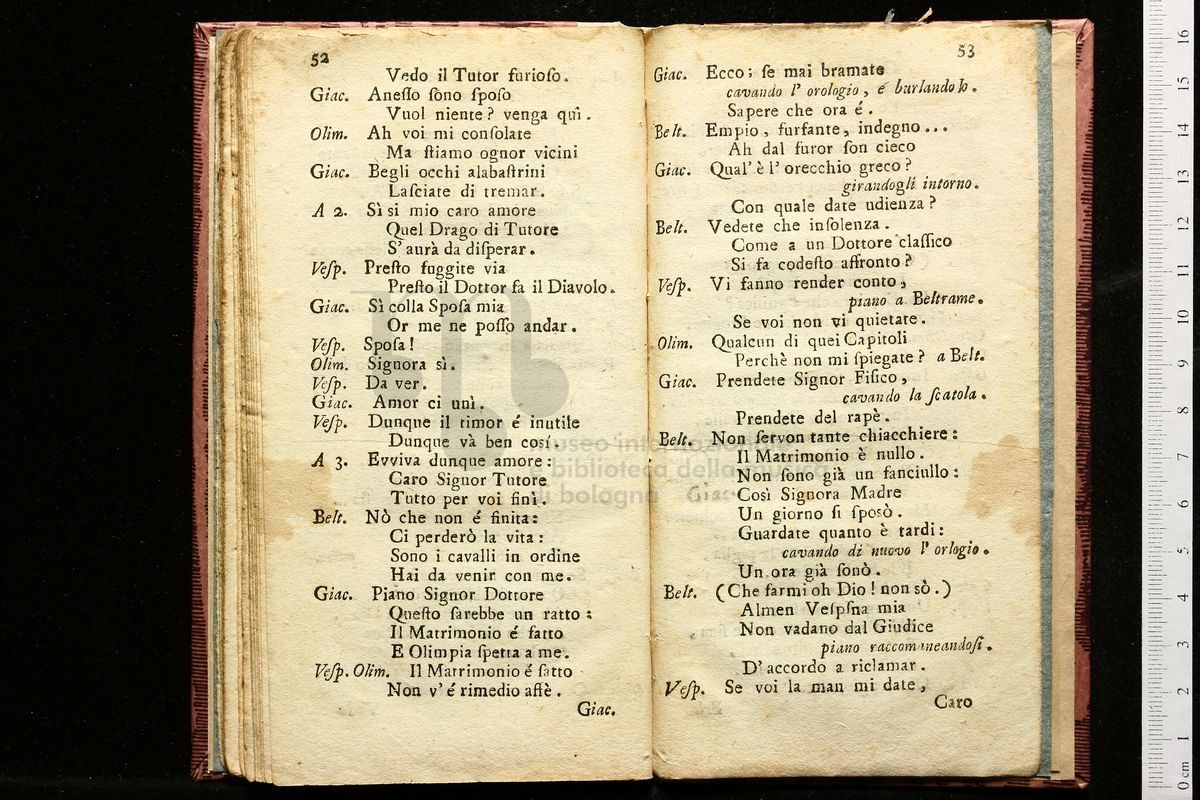 52
Vedo il Tutor furioſo.
Giac. Aneſſo ſono ſpoſo
Vuol niente? venga quì.
Olim. Ah voi mi conſolate
Ma ſtiamo ognor vicini
Giac. Begli occhi alabaſtrini
Laſciate di tremar.
A 2. Sì si mio caro amore
Quel Drago di Tutore
S' aurà da diſperar.
Veſp. Preſto fuggite via
Preſto il Dottor fa il Diavolo.
Giac. Sì colla Spoſa mia
Or me ne poſſo andar.
Veſp. Spoſa!
Olim. Signora sì.
Veſp. Da ver.
Giac. Amor ci unì.
Veſp. Dunque il timor é inutile
Dunque và ben cosí.
A 3. Evviva dunque amore:
Caro Signor Tutore
Tutto per voi finì.
Belt. Nò che non é finita:
Ci perderò la vita:
Sono i cavalli in ordine
Hai da venir con me.
Giac. Piano Signor Dottore
Queſto ſarebbe un ratto:
Il Matrimonio é fatto
E Olimpia ſpetta a me.
Veſp. Olim. Il Matrimonio é fatto
Non v' é rimedio affè.
Giac.
53
Giac. Ecco; ſe mai bramate
cavando l' orologio, é burlandolo.
Sapere che ora é.
Belt. Empio, furfante, indegno...
Ah dal furor ſon cieco
Giac. Qual' è l' orecchio greco?
girandogli intorno.
Con quale date udienza?
Belt. Vedete che inſolenza.
Come a un Dottore claſſico
Si fa codeſto affronto?
Veſp. Vi fanno render conto,
piano a Beltrame.
Se voi non vi quietate.
Olim. Qualcun di quei Capitoli
Perchè non mi ſpiegate? a Belt.
Giac. Prendete Signor Fiſico,
cavando la ſcatola.
Prendete del rapè.
Belt. Non ſervon tante chiacchiere:
Il Matrimonio è nullo.
Non ſono già un fanciullo:
Giac. Così Signora Madre
Un giorno ſi ſposò.
Guardate quanto è tardi:
cavando di nuovo l' orlogio.
Un ora già ſonò.
Belt. (Che farmi oh Dio! non sò.)
Almen Veſpſna mia
Non vadano dal Giudice
piano raccomaneandoſi.
D' accordo a riclamar.
Veſp. Se voi la man mi date,
Caro
museo internazionale
e biblioteca della musica
di bologna
0 cm 1 2 3 4 5 6 7 8 9 10 11 12 13 14 15 16